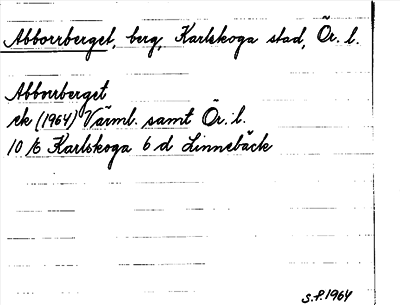 Abborrberget, berg, Karlskoga stad, Ör. l.
Abborrberget
ek (1964) Värml. samt Ör. l.
10 E Karlskoga 6 d Linnebäck
S.F. 1964